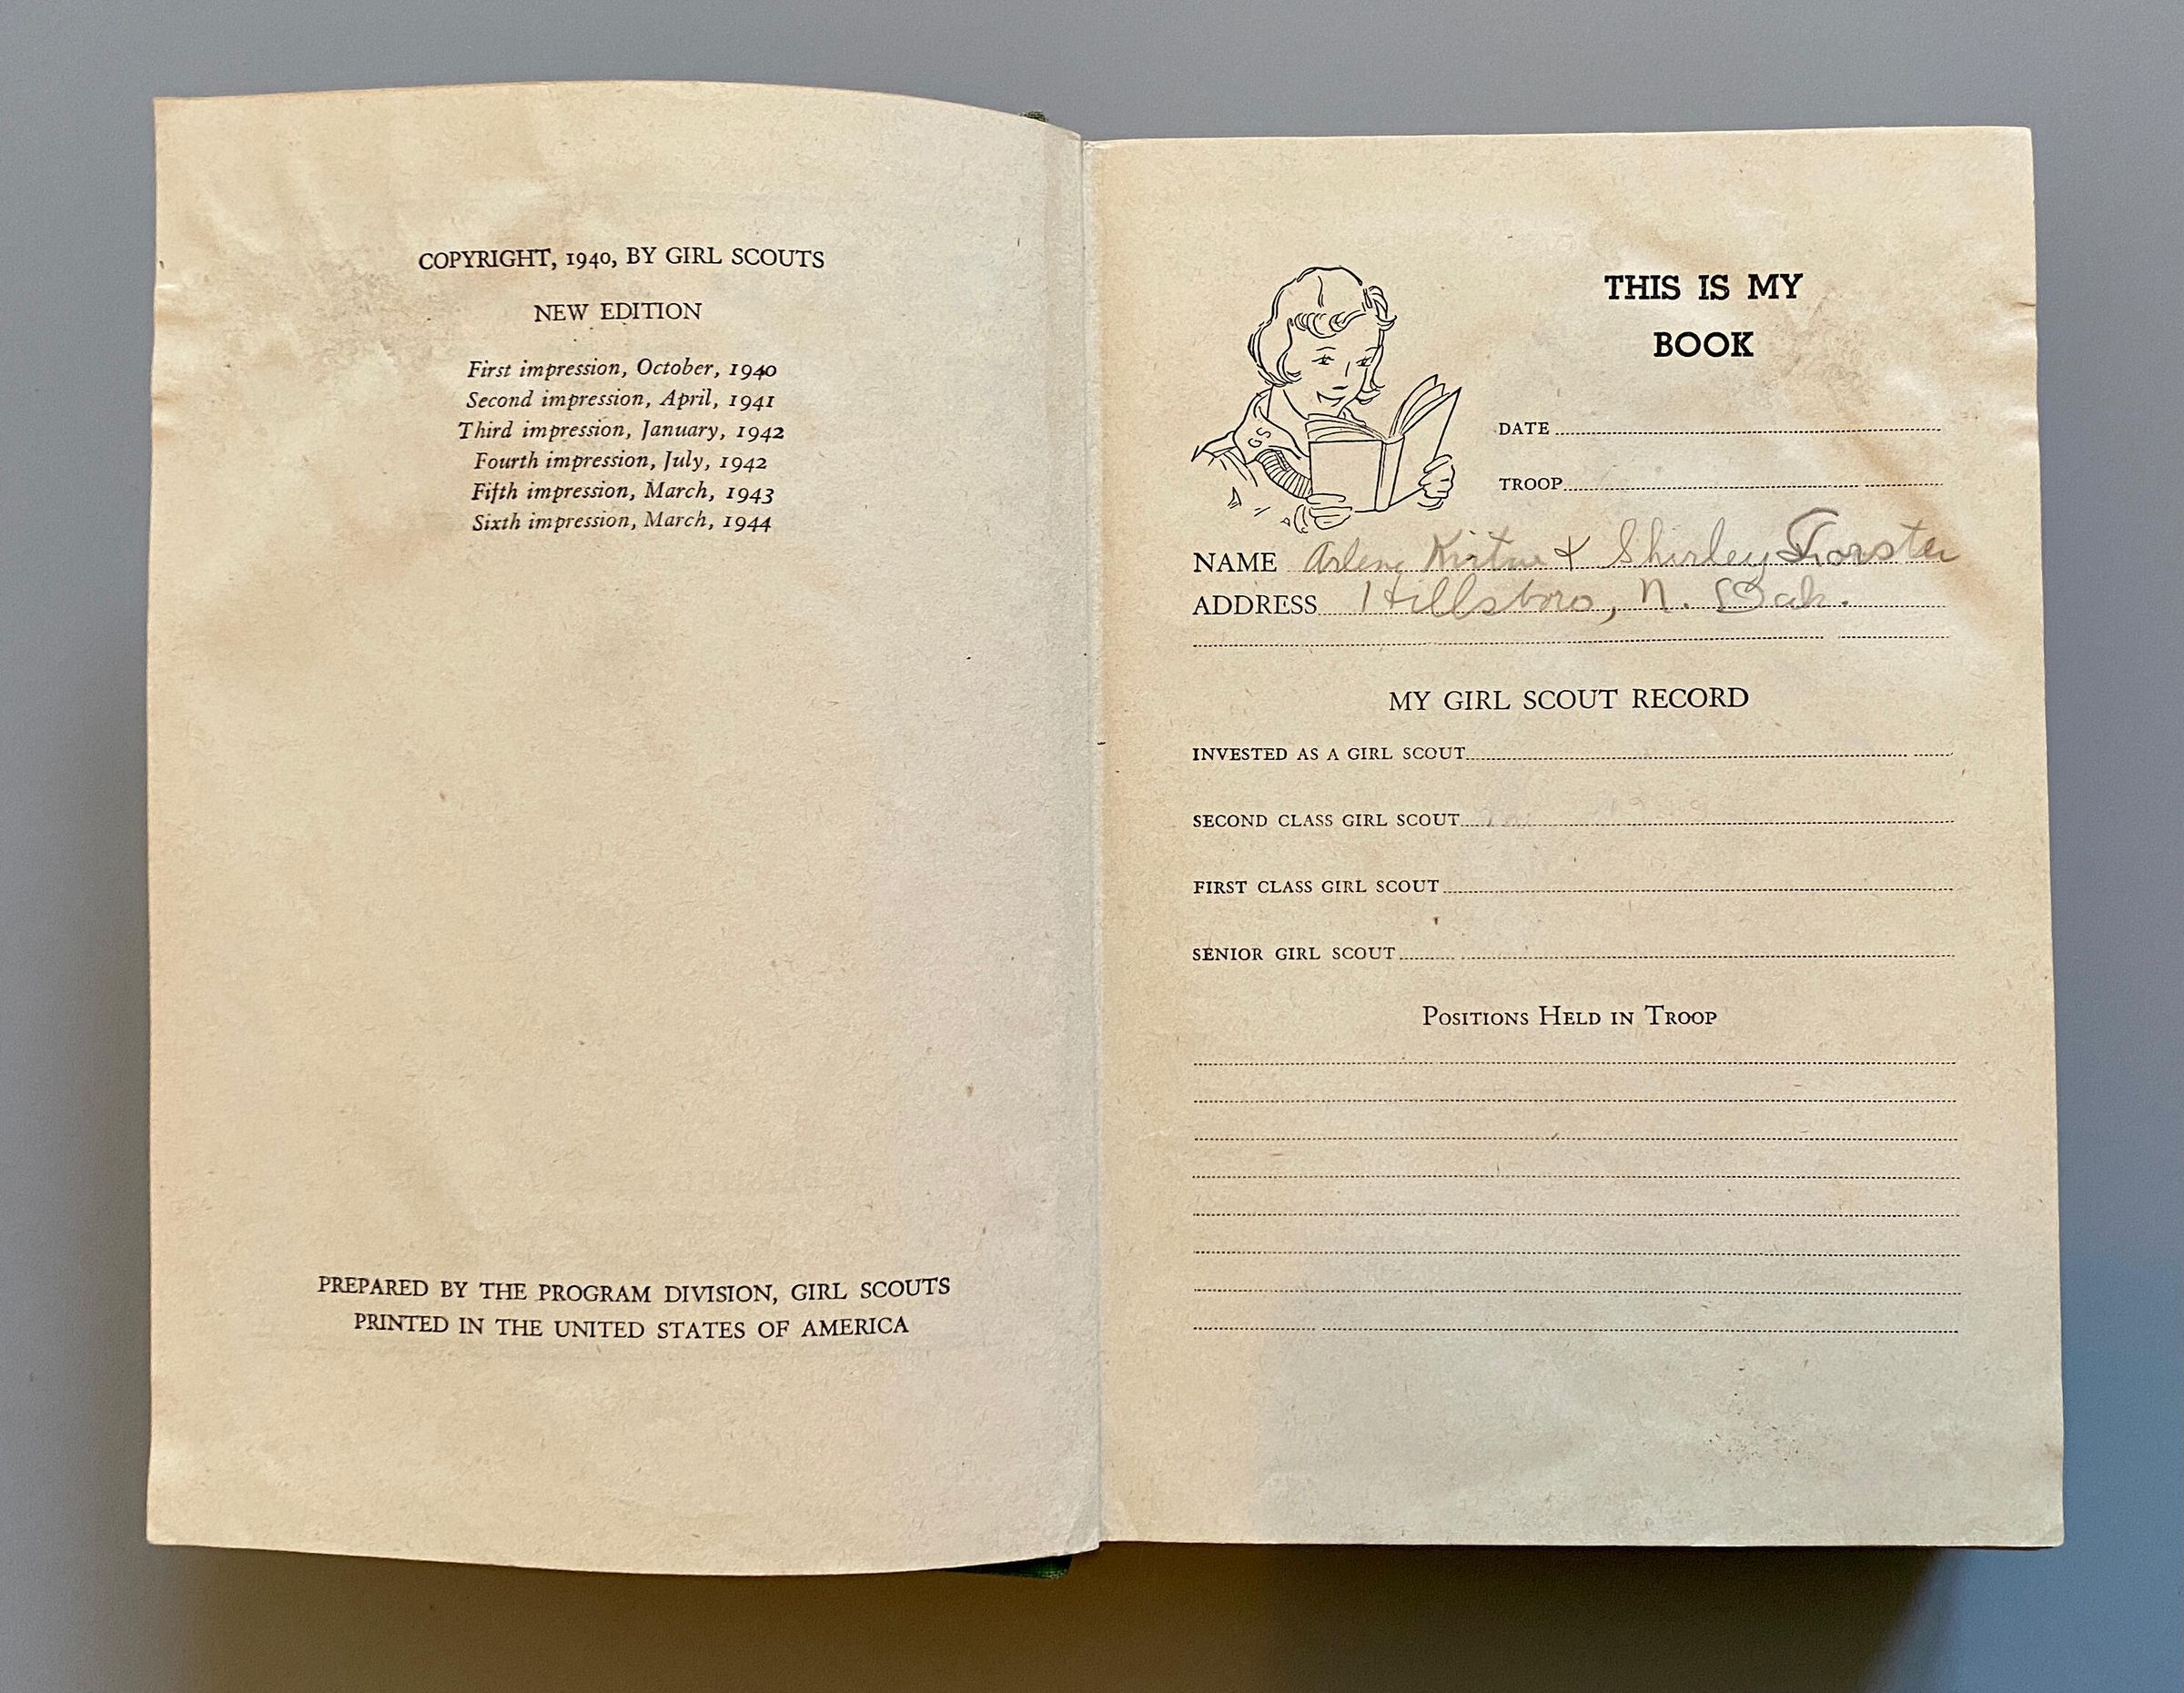 COPYRIGHT, 1940, BY GIRL SCOUTS
NEW EDITION
First impression, October, 1940
Second impression, April, 1941
Third impression, January, 1942
Fourth impression, July, 1942
Fifth impression, March, 1943
Sixth impression, March, 1944
PREPARED BY THE PROGRAM DIVISION, GIRL SCOUTS
PRINTED IN THE UNITED STATES OF AMERICA
THIS IS MY
BOOK
GS
DATE
TROOP
NAME Arlene & Shirley Forster
ADDRESS Hillsboro, N. Dak.
MY GIRL SCOUT RECORD
INVESTED AS A GIRL SCOUT
SECOND CLASS GIRL SCOUT
FIRST CLASS GIRL SCOUT
SENIOR GIRL SCOUT
POSITIONS HELD IN TROOP